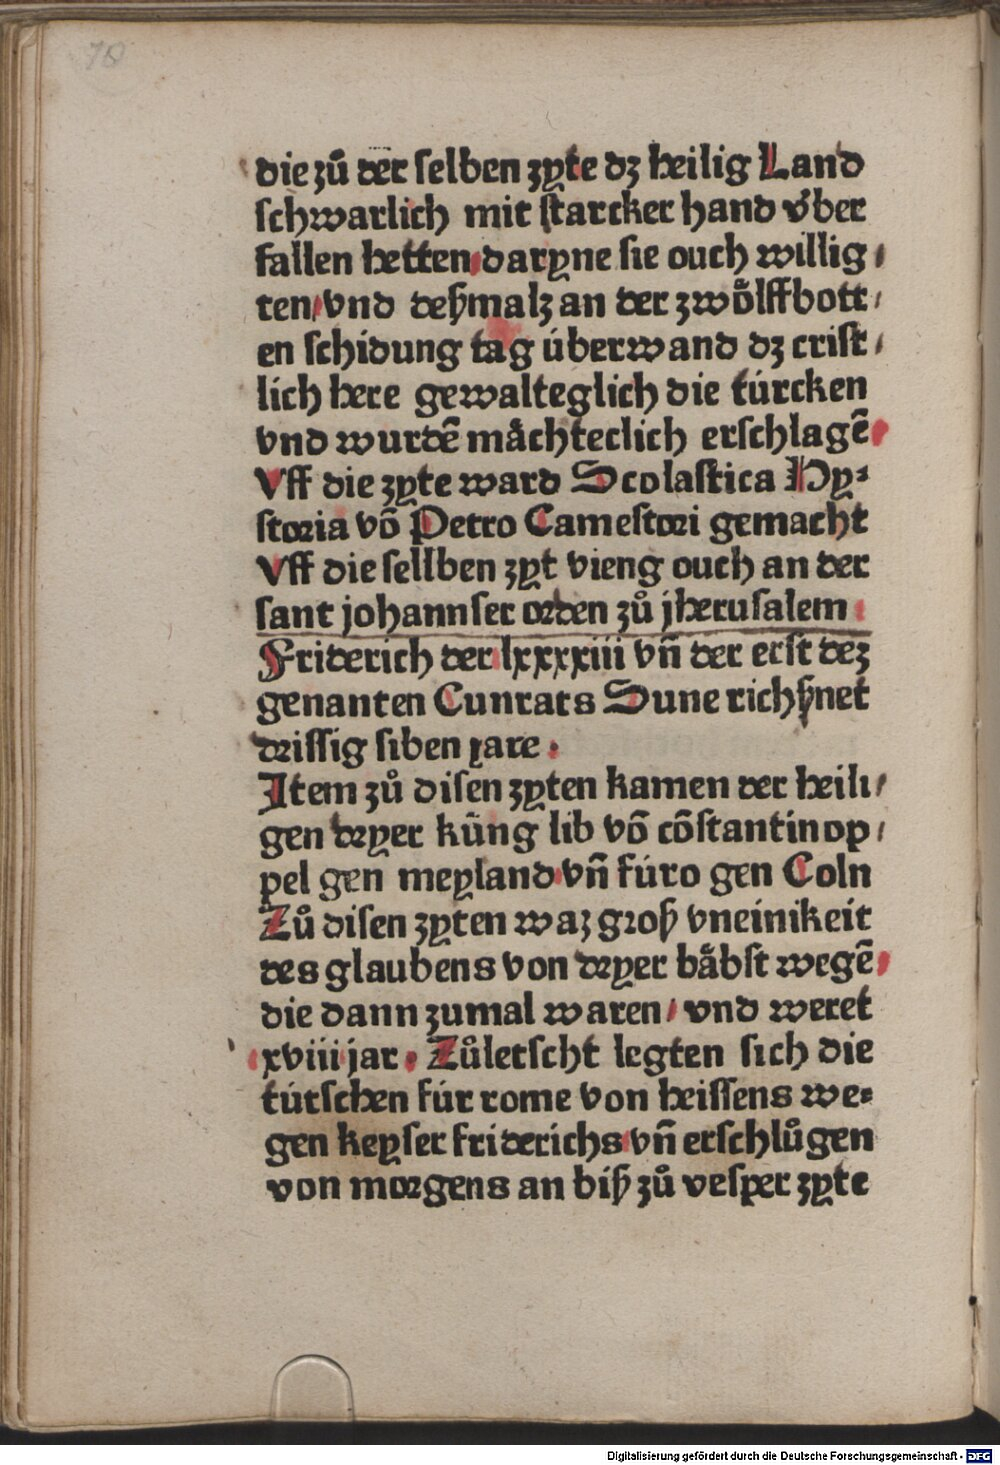 78
die zů der selben zyte dz heilig Land
schwarlich mit starcker hand v́ber
fallen hetten/ daryne sie ouch willig/
ten/ vnd deßmalz an der zwoͤlffbott/
en schidung tag úberwand dz crist/
lich here gewalteglich die túrcken
vnd wurdē maͤchteclich erschlagē
Vff die zyte ward Scolastica Hy-
storia vō Petro Camestori gemacht
Vff die sellben zyt vieng ouch an der
sant johannser orden zů jherusalem
Friderich der lxxxxiii vn̄ der erst dez
genanten Cunrats Sune richßnet
drissig siben yare.
Item zů disen zyten kamen der heili/
gen dryer kúng lib vō cōstantinop/
pel gen meyland vn̄ fúro gen Coln
Zů disen zyten waz groß vneinikeit
des glaubens von dryer baͤbst wegē
die dann zumal waren/ vnd weret
xviii jar. Zůletscht legten sich die
tútschen fúr rome von heissens we-
gen keyser friderichs vn̄ erschlůgen
von morgens an biß zů vesper zyte
Digitalisierung gefördert durch die Deutsche Forschungsgemeinschaft - DFG